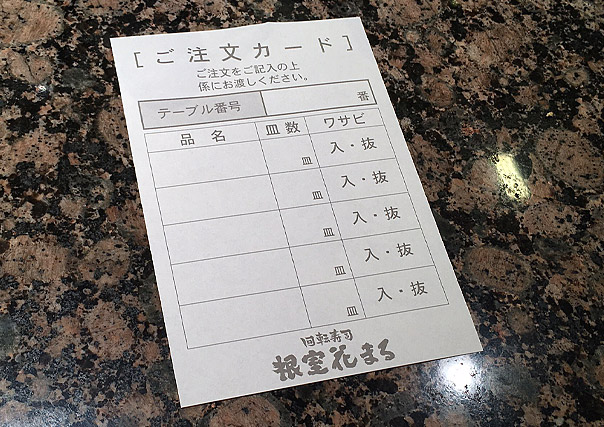 [ご注文カード]
ご注文をご記入の上
係にお渡しください。
テーブル番号 番
品名 皿数 ワサビ
皿 入・抜
皿 入・抜
皿 入・抜
皿 入・抜
皿 入・抜
回転寿司
根室花まる